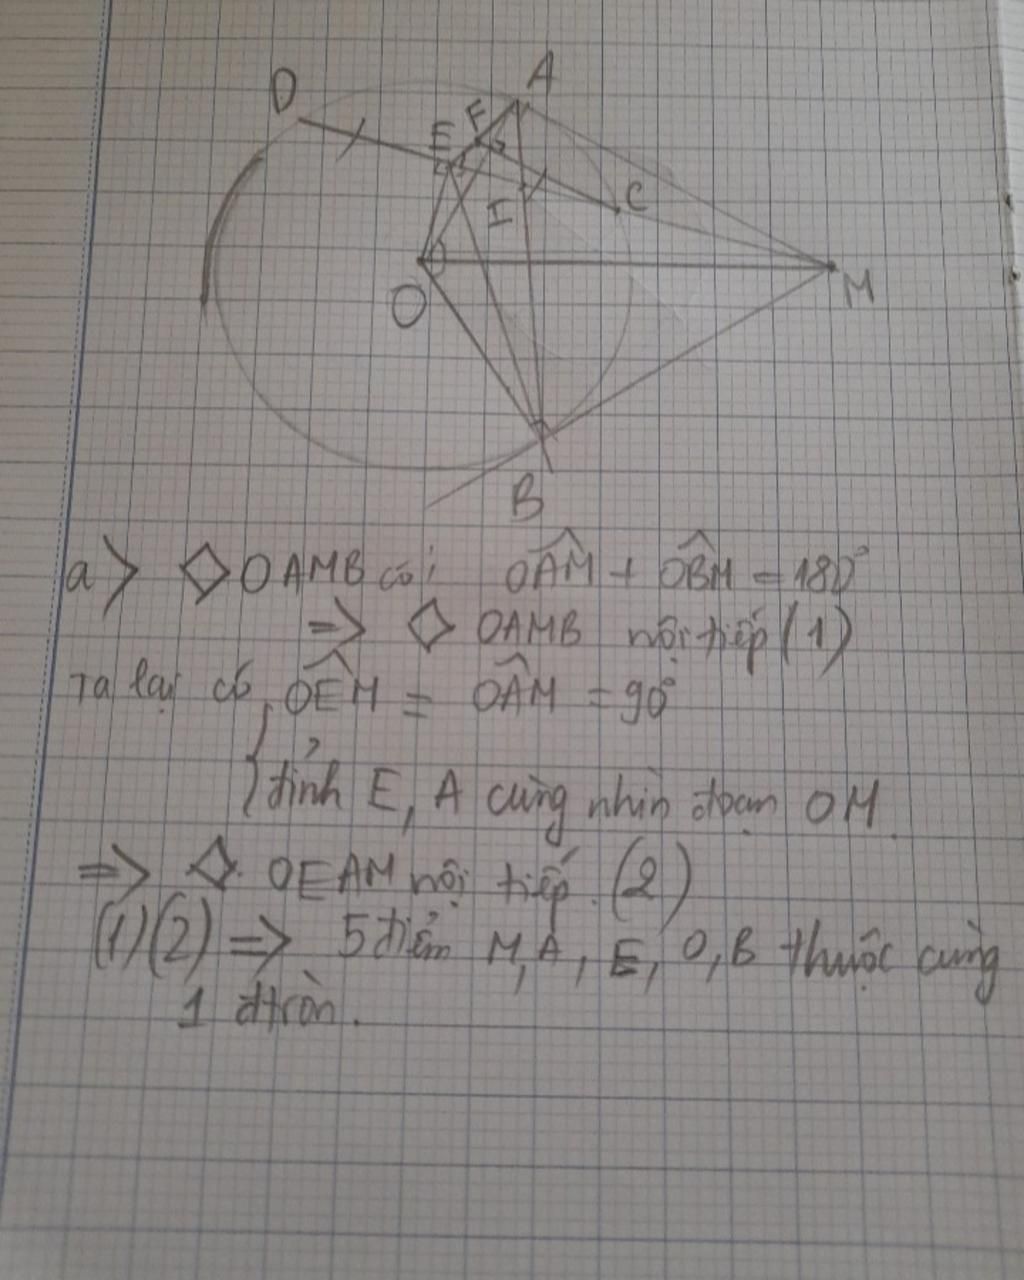 D
A
F
E
C
I
O
M
B
a> ◇OAMB có: OÂM + OB̂M = 180°
=> ◇ OAMB nội tiếp (1)
Ta lại có, OÊM = OÂM = 90°
đỉnh E, A cùng nhìn đoạn OM.
=> ◇. OEAM nội tiếp. (2)
(1)(2) => 5 điểm M, A, E, O, B thuộc cùng
1 đtròn.